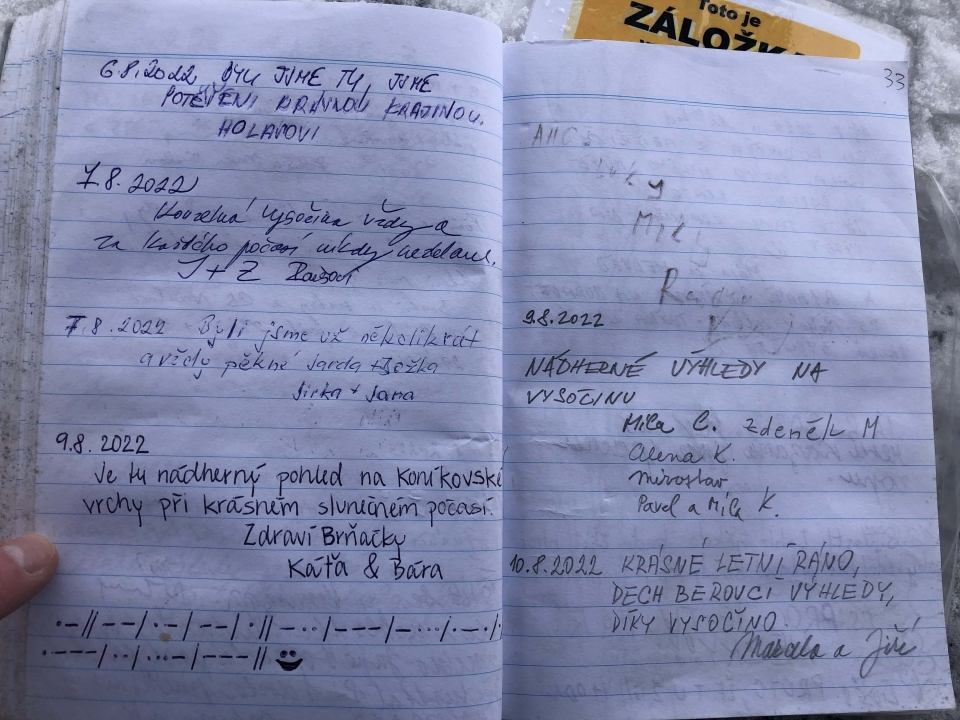 6.8.2022 BYLI JSME TU, JSME
POTĚŠENI KRÁSNOU KRAJINOU.
HOLANOVI
7.8.2022
Kouzelná Vysočina vždy a
za každého počasí nikdy nezklame.
J + Z
7.8.2022 Byli jsme už několikrát
a vždy pěkné Jarda + Božka
Jirka + Jana
9.8.2022
Je tu nádherný pohled na Koníkovské
vrchy při krásném slunečném počasí.
Zdraví Brňačky
Káťa & Bára
·–//––/·–/––/·//–··/–––/–···/·–·/
·–––/··/···–/–––//
Toto je
ZÁLOŽK
33
Miki
9.8.2022
NÁDHERNÉ VÝHLEDY NA
VYSOČINU
Míla C. Zdeněk M
Alena K.
Miroslav
Pavel a Míla K.
10.8.2022 KRÁSNÉ LETNÍ RÁNO,
DECH BEROUCÍ VÝHLEDY,
DÍKY VYSOČINO.
Marcela a Jiří